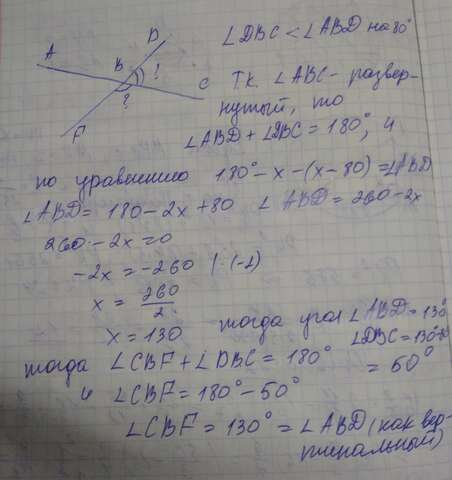 D
∠DBC < ∠ABD на 80°
A
B
!
C
?
F
Тк. ∠ABC - развер-
нутый, то
∠ABD + ∠DBC = 180°, и
по уравнению 180° - x - (x - 80) = ∠ABD
∠ABD = 180 - 2x + 80 ∠ABD = 260 - 2x
260 - 2x = 0
-2x = -260 | · (-1)
x = 260/2
x = 130
тогда угол ∠ABD = 130°
∠DBC = 130-80
= 50°
тогда ∠CBF + ∠DBC = 180°
и ∠CBF = 180° - 50°
∠CBF = 130° = ∠ABD (как вер-
тикальный)